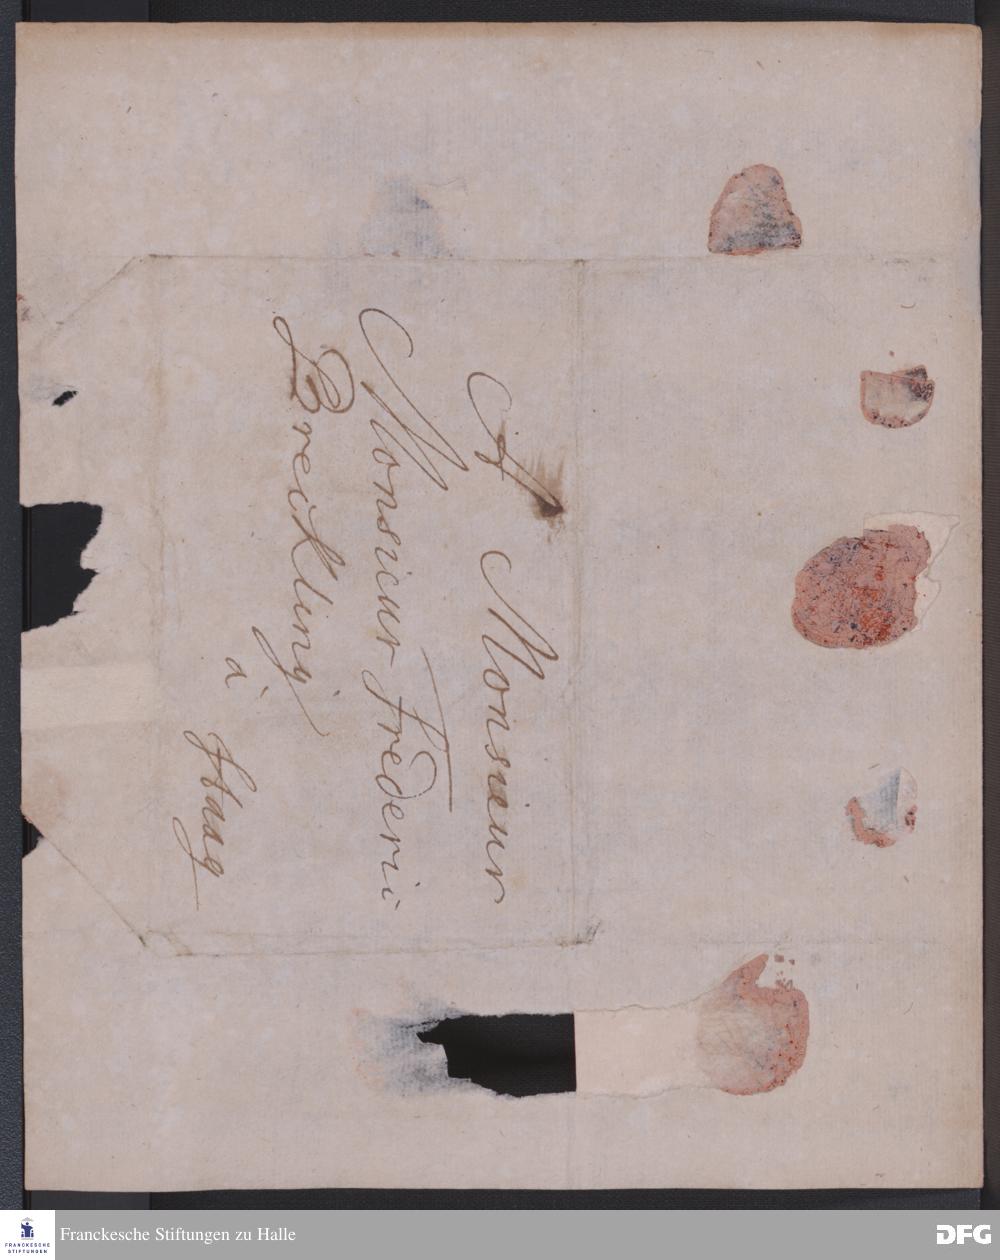 A Monsieur
Monsieur Frederi
Breckling
à
Haag
FRANCKESCHE
STIFTUNGEN
Franckesche Stiftungen zu Halle
DFG